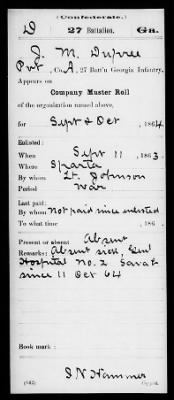 (Confederate.)
D 27 Battalion. Ga.
J. M. Dupree
Pvt, Co. A, 27 Batt'n Georgia Infantry.
Appears on
Company Muster Roll
of the organization named above,
for Sept & Oct, 1864
Enlisted:
When Sept 11, 1863.
Where Sparta
By whom Lt. Johnson
Period War
Last paid:
By whom Not paid since enlisted
To what time , 186 .
Present or absent Absent
Remarks: Absent sick, Genl
Hospital No. 2 Savah
since 11 Oct 64
Book mark:
J N Hammer
(642) Copyist.